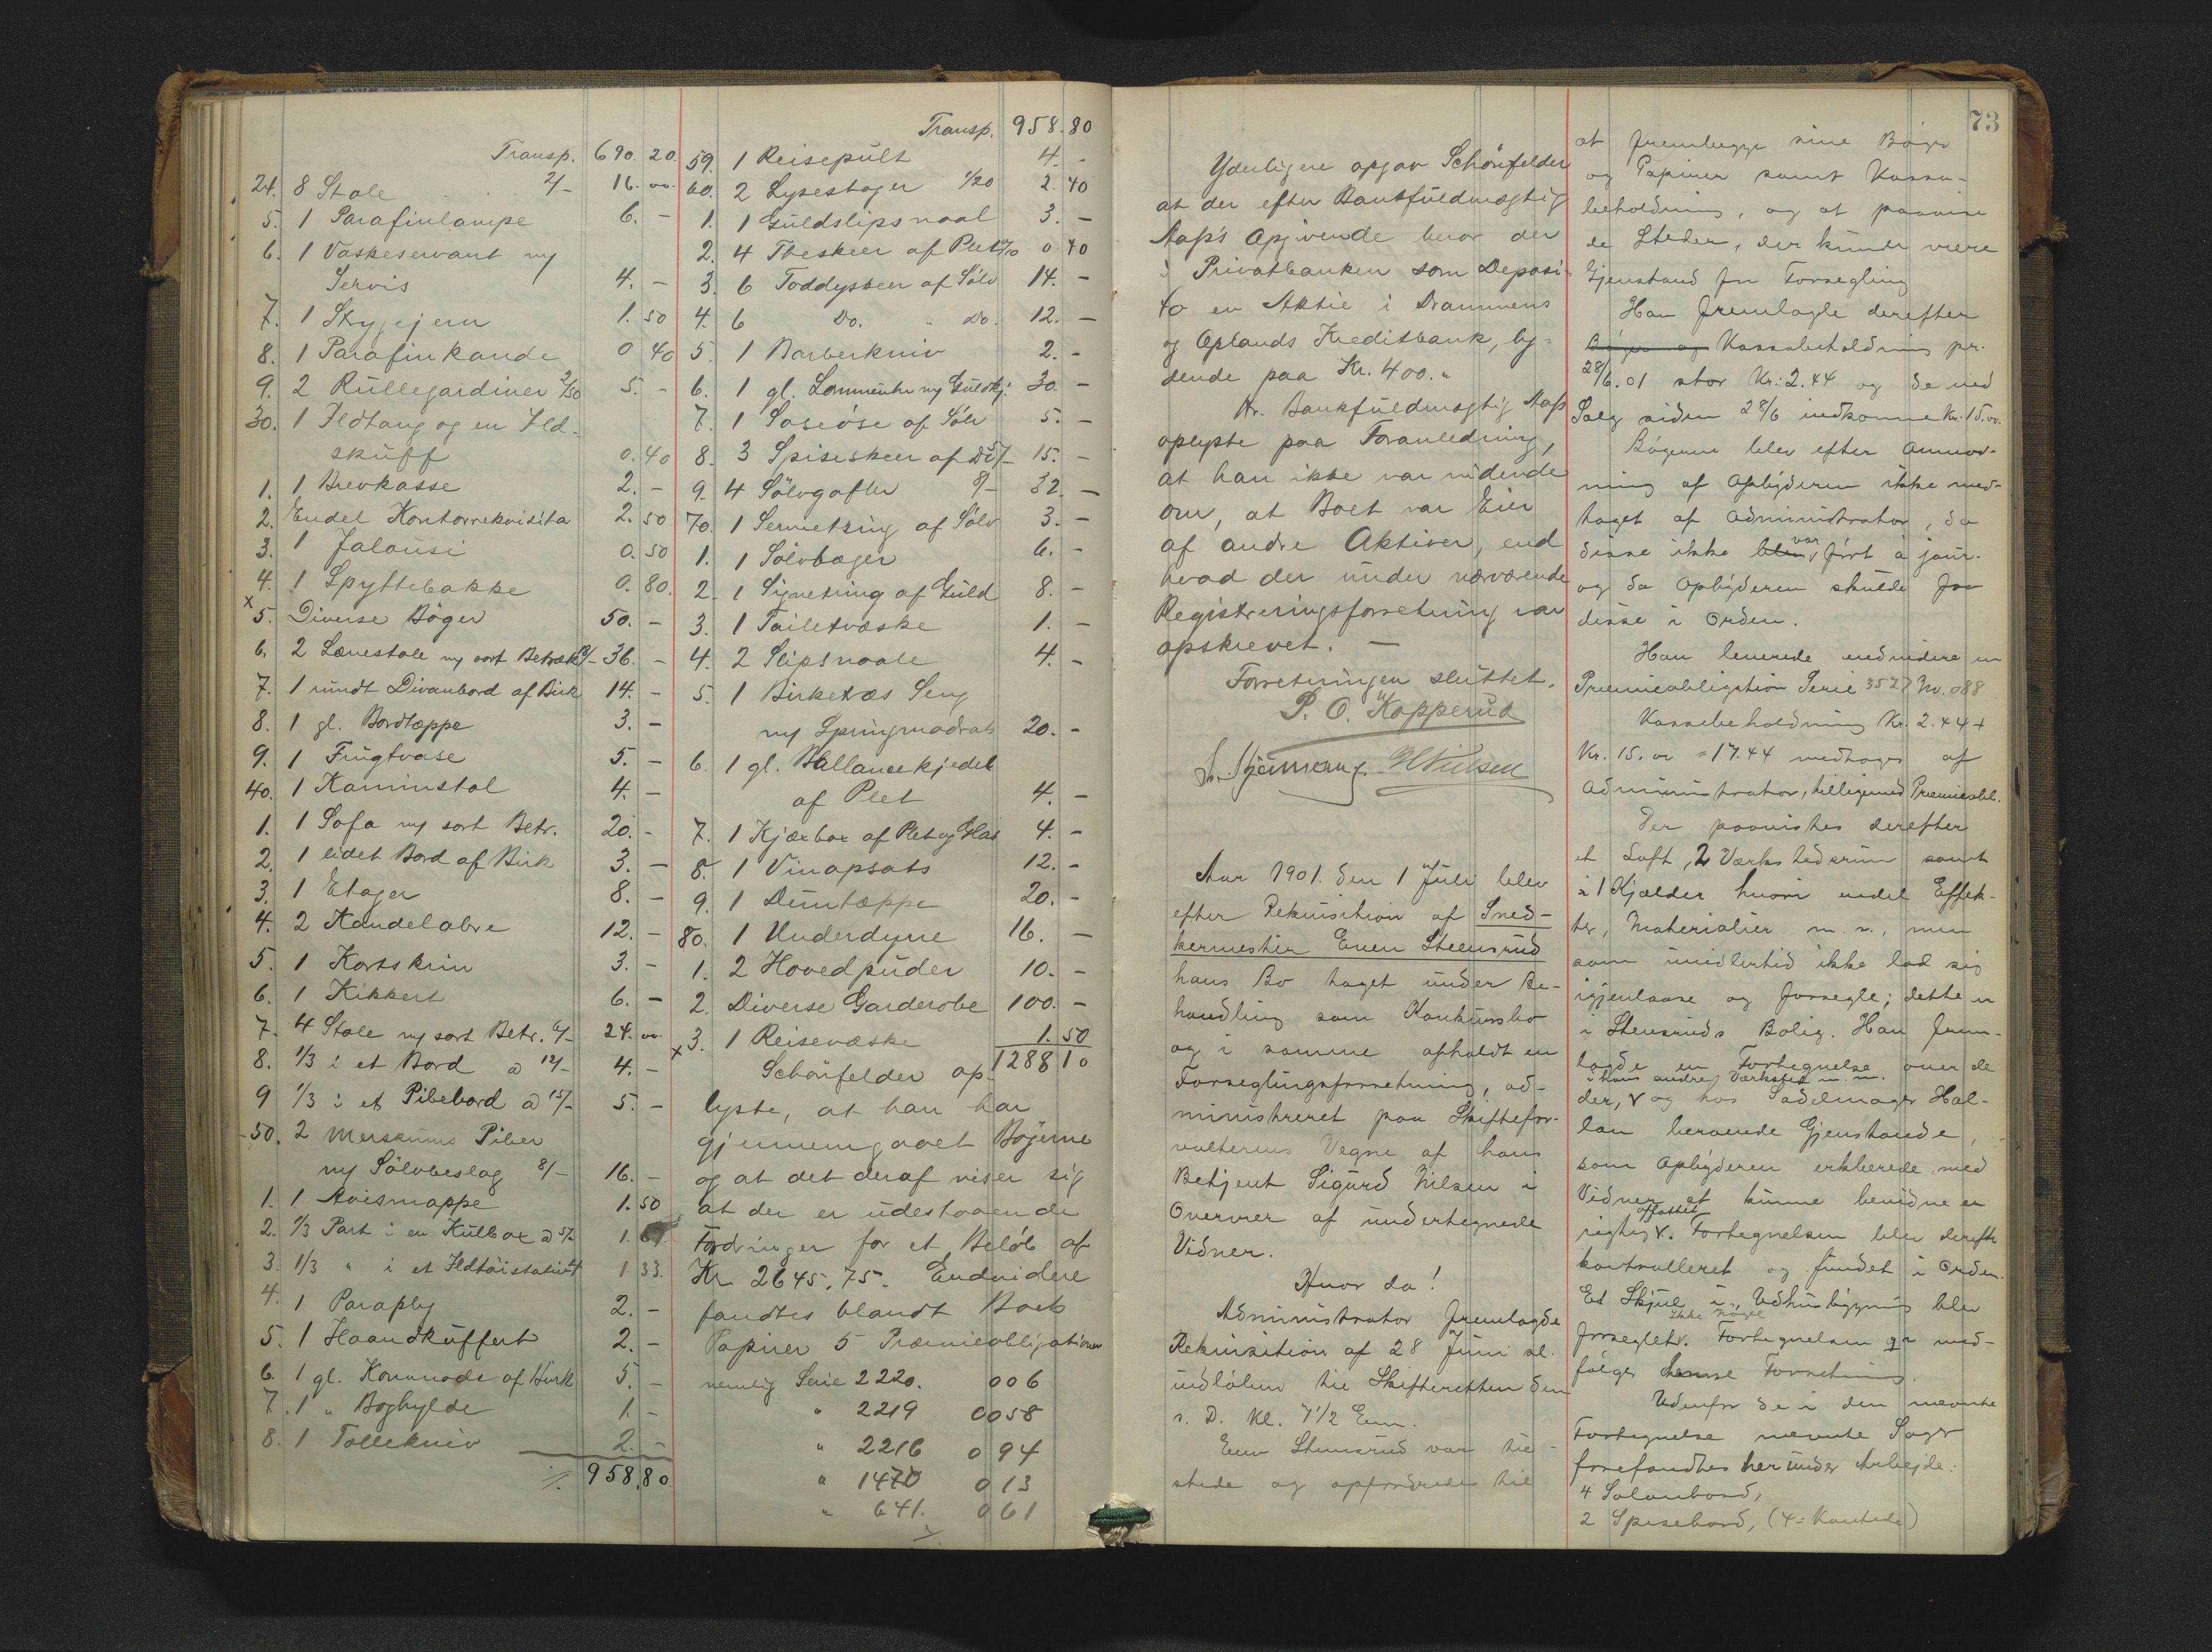 Transp. 690. 20.
24. 8 Stole 2/- 16. 00.
5. 1 Parafinlampe 6. -
6. 1 Vaskeservant m
Servis 4. -
7. 1 Strygejern 1. 50
8. 1 Parafinkande 0 40
9. 2 Rullegardiner 2/50 5. -
30. 1 Ildtang og en Ild-
skuff 0.40
1. 1 Brevkasse 2. -
2. Endel Kontorrekvisita 2. 50
3. 1 Jalousi 0. 50
4. 1 Spyttebakke 0. 80.
x 5. Diverse Böger 50. -
6. 2 Lænestole m sort Betræk 18/- 36. -
7. 1 rundt Divanbord af Birk 14. -
8. 1 gl. Bordtæppe 3. -
9. 1 Frugtvase 5. -
40. 1 Kaminstol 4. -
1. 1 Sofa m sort Betr. 20. -
2. 1 lidet Bord af Birk 3. -
3. 1 Etager 8. -
4. 2 Kandelabre 12. -
5. 1 Kortskrin 3. -
6. 1 Kikkert 6. -
7. 4 Stole m sort Betr. 6/- 24. 00
8. 1/3 i et Bord a 12/- 4. -
9 1/3 i et Pibebord a 15/- 5. -
50. 2 Merskums Piber
m Sölvbeslag 8/- 16. -
1. 1 Avismappe 1. 50
2. 1/3 Part i en Kulbox a 5/- 1.
3. 1/3 " i et Ildtöistativ 4 1 33.
4. 1 Paraply 2. -
5. 1 Haandkuffert 2. -
6. 1 gl. Kommode af Birk 5. -
7. 1 " Boghylde 1. -
8. 1 Tollekniv 2. -
958.80
Transp. 958. 80
59. 1 Reisepult 4. -
60. 2 Lysestager 1/20 2. 40
1. 1 Guldslipsnaal 3. -
2. 4 Theskeer af Plet 0/10 0 40
3. 6 Toddyskeer af Sölv 14. -
4. 6 Do. " Do. 12. -
5. 1 Barberkniv 2. -
6. 1 gl. Lommeuhr m Guldkj. 30. -
7. 1 Soseöse af Sölv 5. -
8. 3 Spiseskeer af Do 5/- 15. -
9. 4 Sölvgafler 8/- 32. -
70. 1 Serviettring af Sölv 3. -
1. 1 Sölvbæger 6. -
2. 1 Signetring af Guld 8. -
3. 1 Toiletvæske 1. -
4. 2 Slipsnaale 4. -
5. 1 Birketræs Seng
m Springmadrats 20. -
6. 1 gl. Ballancekjedel
af Plet 4. -
7. 1 Kjæxbox af Plet og Glas 4. -
8. 1 Vinopsats 12. -
9. 1 Duntæppe 20. -
80. 1 Underdyne 16. -
1. 2 Hovedpuder 10. -
2. Diverse Garderobe 100. -
x 3. 1 Reisevæske 1. 50
Schönfelder op- 1288 10
lyste, at han har
gjennemgaaet Bögerne
og at det deraf viser sig
at der er udestaaende
Fordringer for et Belöb af
Kr 2645.75. Endvidere
fandtes blandt Boets
Papirer 5 Præmieobligationer
nemlig Serie 2220. 006
" 2219 0058
" 2216 094
" 1470 013
" 641. 061
73
Yderligere opgav Schönfelder
at der efter Bankfuldmægtig
Aas's Opgivende beror der
i Privatbanken som Deposi-
to en Aktie i Drammens
og Oplands Kreditbank, ly-
dende paa Kr. 400."
Hr. Bankfuldmægtig Aas
oplyste paa Foranledning,
at han ikke var vidende
om, at Boet var Eier
af andre Aktiver, end
hvad der under nærværende
Registreringsforretning var
opskrevet. -
Forretningen sluttet.
P. O. Kopperud
H Nielsen
Aar 1901. den 1 Juli blev
efter Rekvisition af Sned-
kermester Even Steensrud
hans Bo taget under Be-
handling som Konkursbo
og i samme afholdt en
Forseglingsforretning, ad-
ministreret paa Skiftefor-
valterens Vegne af hans
Betjent Sigurd Nilsen i
Overvær af undertegnede
Vidner.
Hvor da!
Administrator fremlagde
Rekvisition af 28 Juni al.
indlöben til Skifteretten den
s. D. Kl. 7 1/2 Em.
Even Steensrud var til-
stede og opfordredes til
at fremlægge sine Böger
og Papirer samt Kassa-
beholdning, og at paavise
de Steder, der kunde være
Gjenstand for Forsegling
Han fremlagde derefter
Böger og Kassabeholdning pr.
28/6.01 stor Kr.: 2.44 og de ved
Salg siden 28/6 indkomne Kr. 15.00.
Bögerne blev efter Anmod-
ning af Opbyderen ikke med-
taget af Administrator, da
disse ikke blev var fört a jour.
og da Opbyderen skulde faa
disse i Orden.
Han leverede endvidere en
Præmieobligation Serie 3527 No. 088
Kassabeholdning Kr. 2.44 +
Kr. 15.00 = 17.44 medtoges af
Administrator, tilligemed Præmieobl.
Der paavistes derefter
et Loft, 2 Værkstedsrum samt
i 1 Kjælder hvori endel Effek-
ter, Materialier m. v., men
som imidlertid ikke lod sig
igjenlaase og forsegle; dette er
i Stensruds Bolig. Han frem-
lagde en Fortegnelse over de
i hans andre Værksted m. m.
der, v og hos Sadelmager Hal-
lan beroende Gjenstande,
som Opbyderen erklærede med
Vidner at kunne bevidne er
affattet
rigtig v. Fortegnelsen blev derefter
kontrolleret og fundet i Orden.
Et Skjul i Udhusbygning blev
Ikke Nögel
forseglet v. Fortegnelsen er med-
fölger denne Forretning.
Udenfor de i den nævnte
Fortegnelse nævnte Sager
forefandtes her under Arbejde:
4 Salonbord,
2 Spisebord, (4 = Kantede)